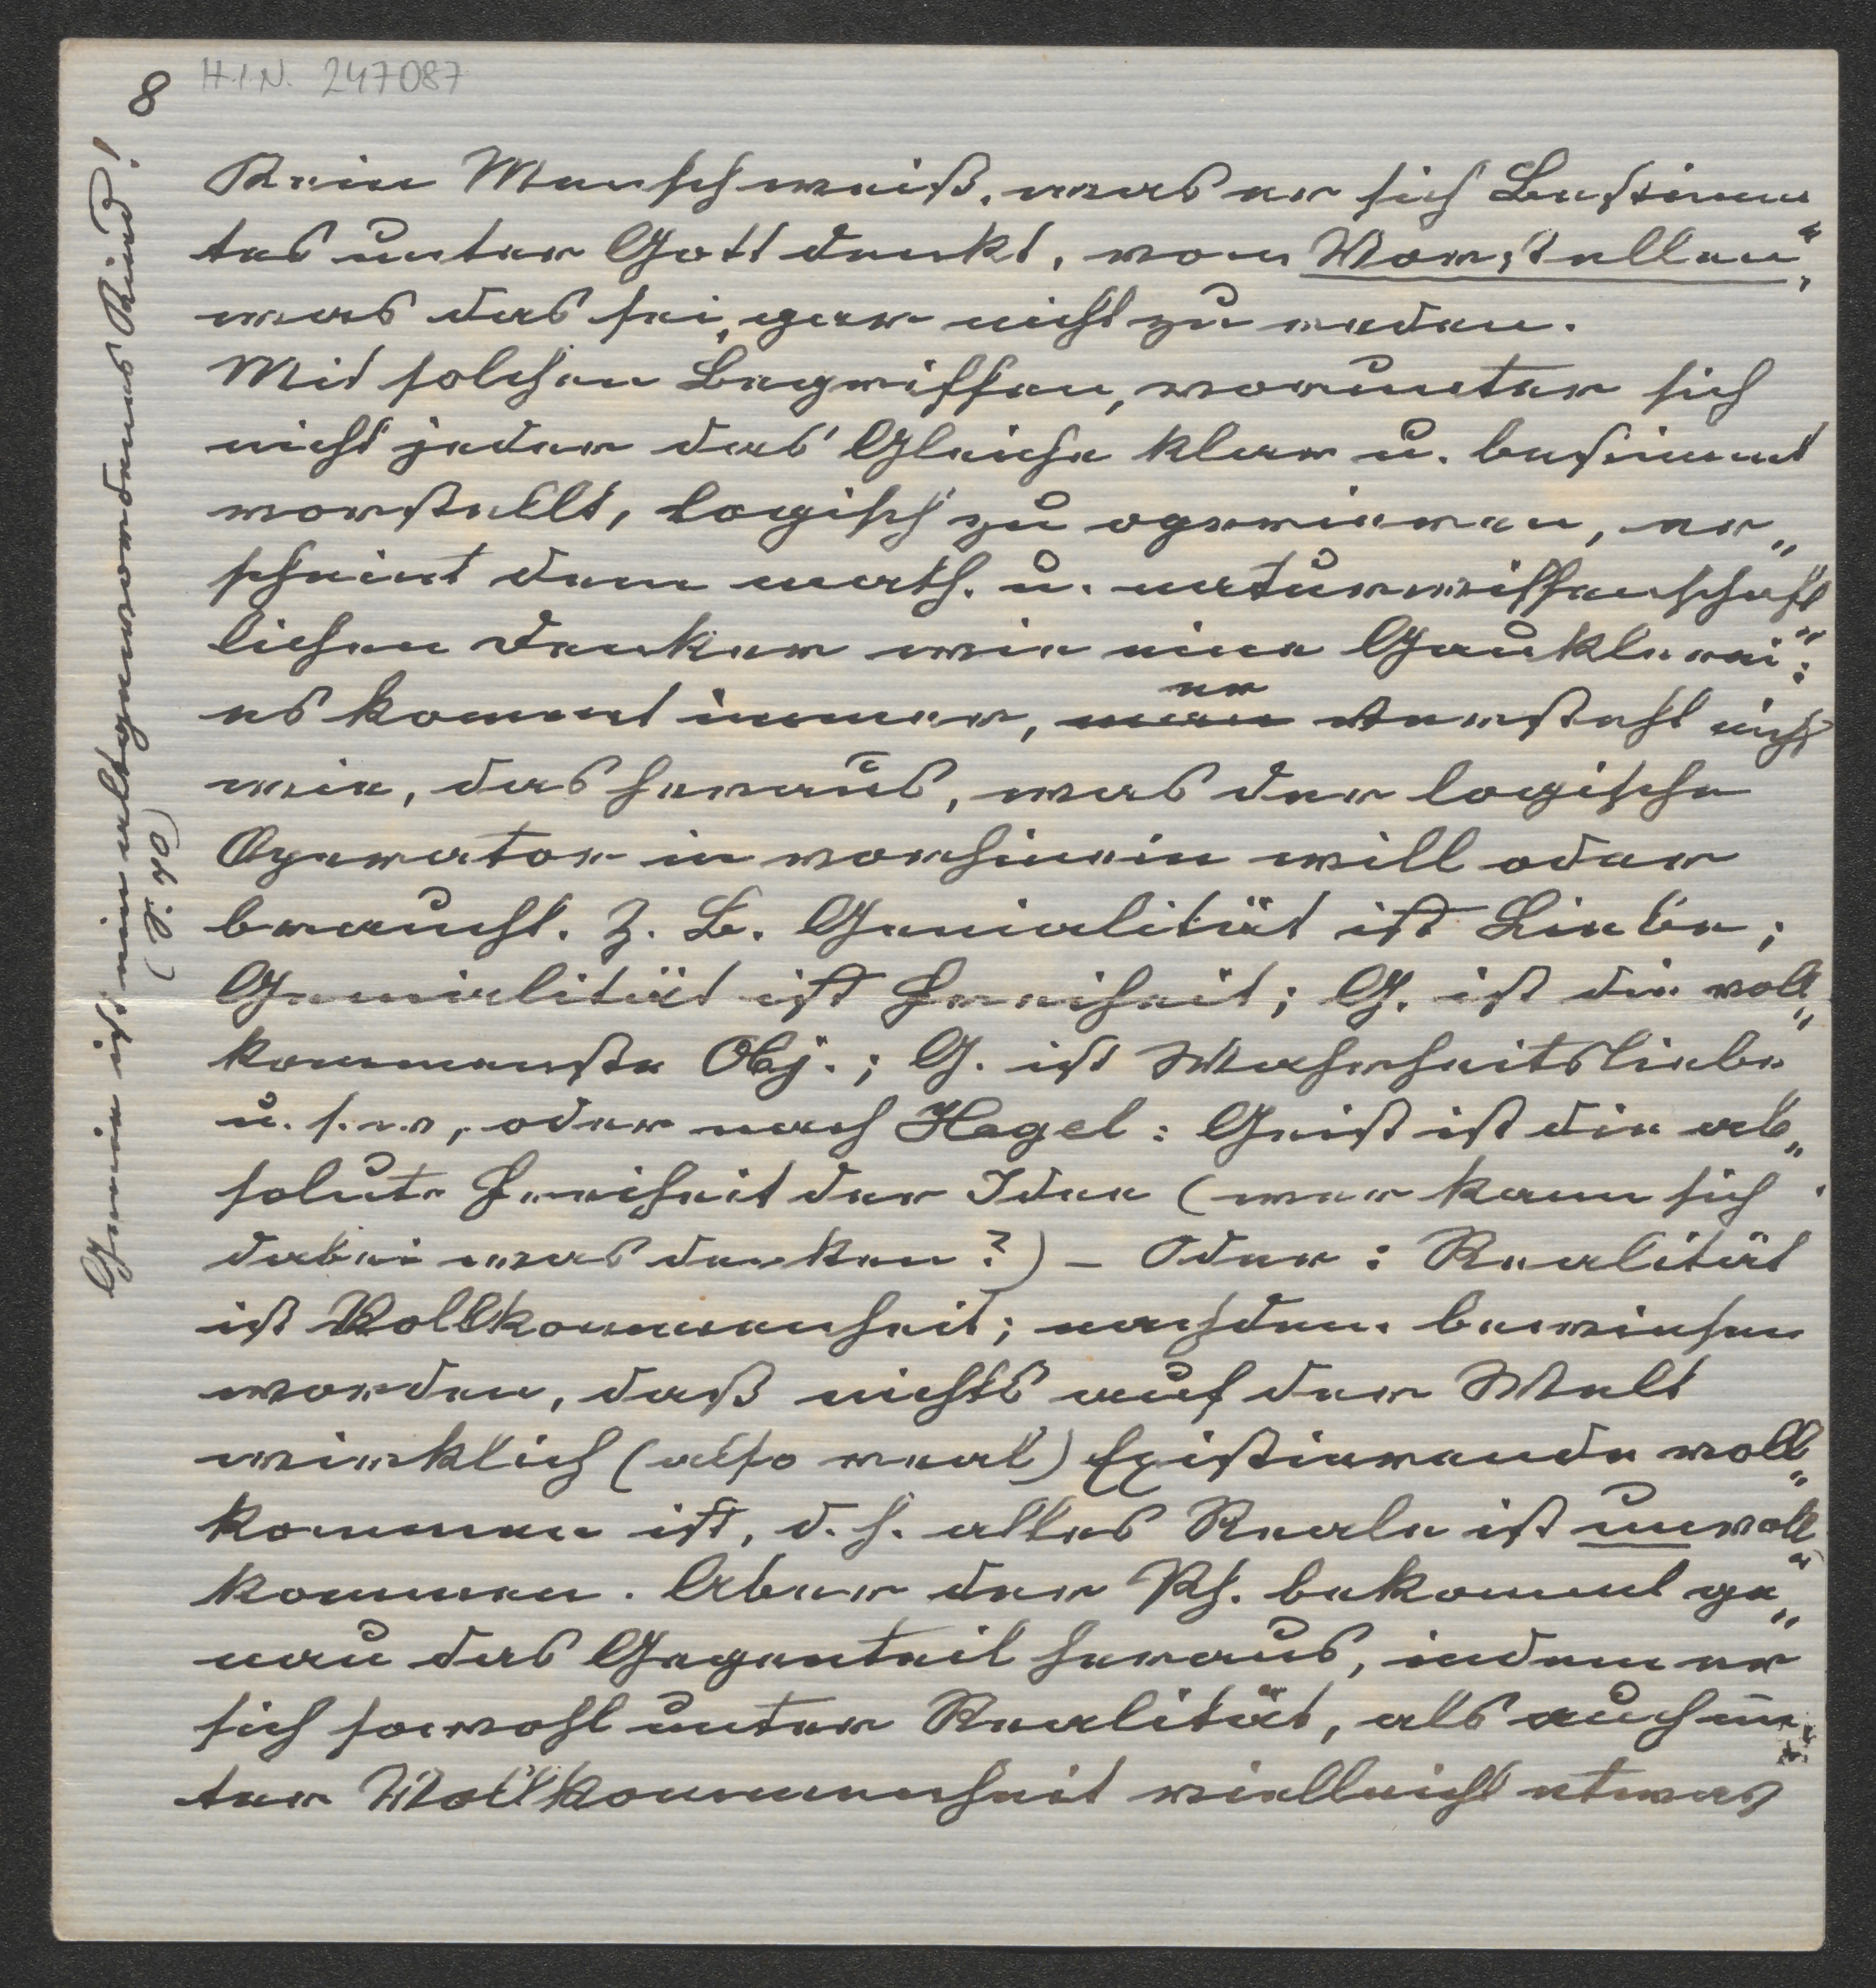 8 H.I.N. 247087
Kein Mensch weiß, was er sich Bestimm
tes unter Gott denkt, vom Vorstellen,
was das sei, gar nicht zu reden.
Mit solchen Begriffen, worunter sich
nicht jeder das Gleiche klar u. bestimmt
vorstellt, logisch zu operieren, er„
scheint dem math. u. naturwissenschaft
lichen Denker wie eine Gauklerei:
es kommt immer, man er versteht nicht
wie, das heraus, was der logische
Operator in vorhinein will oder
braucht. Z. B. Genialität ist Liebe;
Genialität ist Freiheit; G. ist die voll„
kommenste Obj.; G. ist Wahrheitsliebe
u. s. w, oder nach Hegel: Geist ist die ab„
solute Freiheit der Idee (wer kann sich
dabei was denken?) – Oder: Realität
ist Vollkommenheit; nachdem bewiesen
worden, daß nichts auf der Welt
wirklich (also real) Existierende voll„
kommen ist, d. h. alles Reale ist unvoll„
kommen. Aber der Ph. bekommt ge„
nau das Gegenteil heraus, indem er
sich sowohl unter Realität, als auch un„
ter Vollkommenheit vielleicht etwas
Genie ist ein altgewordenes Kind!
(Ob i. 40)